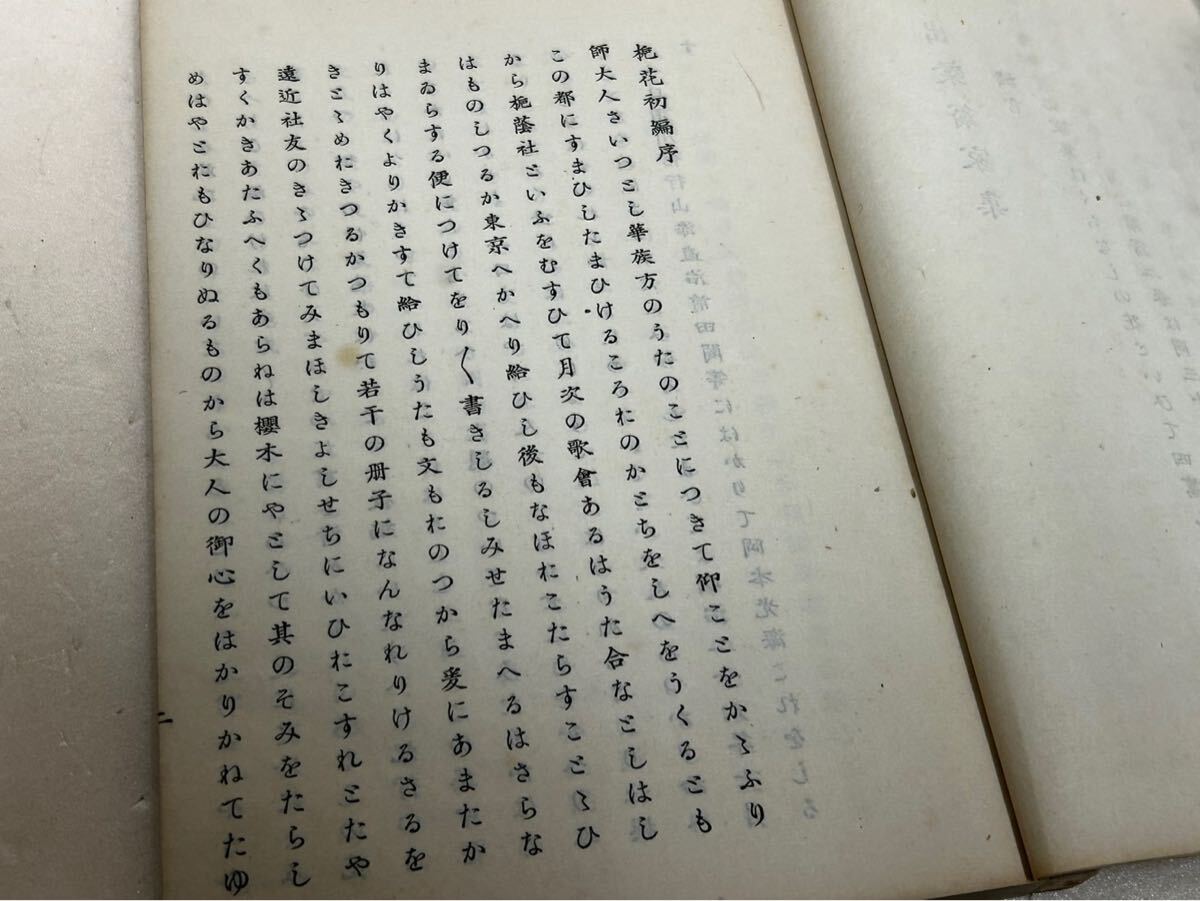 梔花初編序
師大人さいつとし華族方のうたのことにつきて仰ことをかゝふり
この都にすまひしたまひけるころおのかとちをしへをうくるとも
から梔蔭社といふをむすひて月次の歌會あるはうた合なとしはし
はものしつるか東京へかへり給ひし後もなほおこたらすことゝひ
まゐらする便につけてをり〳〵書きしるしみせたまへるはさらな
りはやくよりかきすて給ひしうたも文もおのつから爰にあまたか
きとゝめおきつるかつもりて若干の册子になんなれりけるさるを
遠近社友のきゝつけてみまほしきよしせちにいひおこすれとたや
すくかきあたふへくもあらねは櫻木にやとして其のそみをたらし
めはやとおもひなりぬるものから大人の御心をはかりかねてたゆ
二